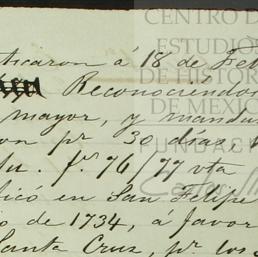 ticaron á 18 de Feb
Reconociéndo
mayor, y manda
on pr. 30 días,
tu. fs. 76/77 vta
icó en San Felipe
o de 1734, á favor
Santa Cruz, pr. los
CENTRO DE
ESTUDIOS
DE HISTORIA
DE MEXICO